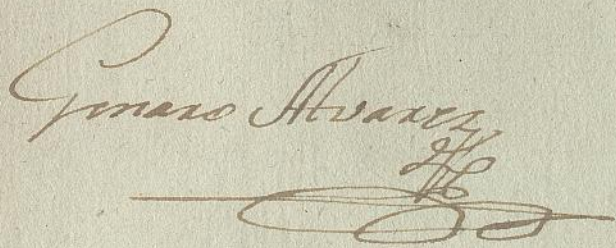 Genaro Alvarez